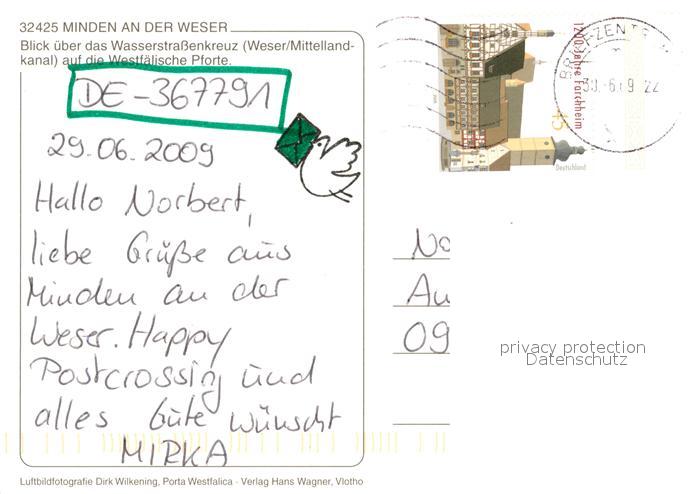 32425 MINDEN AN DER WESER
Blick über das Wasserstraßenkreuz (Weser/Mittelland-
kanal) auf die Westfälische Pforte.
DE-367791
29.06.2009
Hallo Norbert,
liebe Grüße aus
Minden an der
Weser. Happy
Postcrossing und
alles Gute wünscht
MIRKA
Luftbildfotografie Dirk Wilkening, Porta Westfalica · Verlag Hans Wagner, Vlotho
1200 Jahre Forchheim
45
Deutschland
BRIEFZENTRUM
30.-6.09 22
No
Au
09
privacy protection
Datenschutz